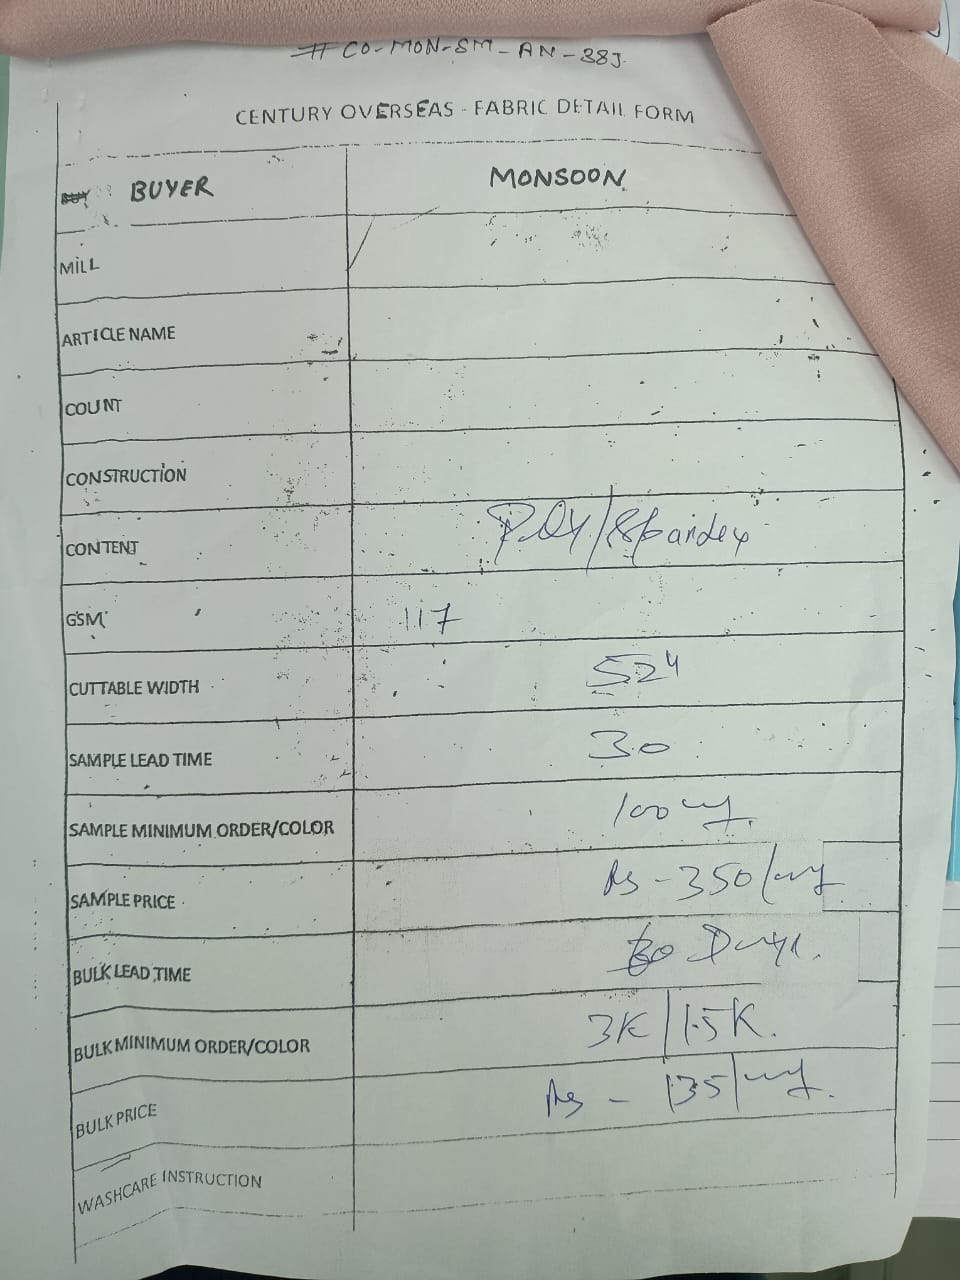 # CO-MON-SM-AN-38J
CENTURY OVERSEAS - FABRIC DETAIL FORM
BUYER MONSOON
MILL
ARTICLE NAME
COUNT
CONSTRUCTION
CONTENT POLY/Spandex
GSM 117
CUTTABLE WIDTH 52"
SAMPLE LEAD TIME 30
SAMPLE MINIMUM ORDER/COLOR 100
SAMPLE PRICE Rs - 350/
BULK LEAD TIME Days.
BULK MINIMUM ORDER/COLOR 3K/1.5K.
BULK PRICE Rs - 135/
WASHCARE INSTRUCTION